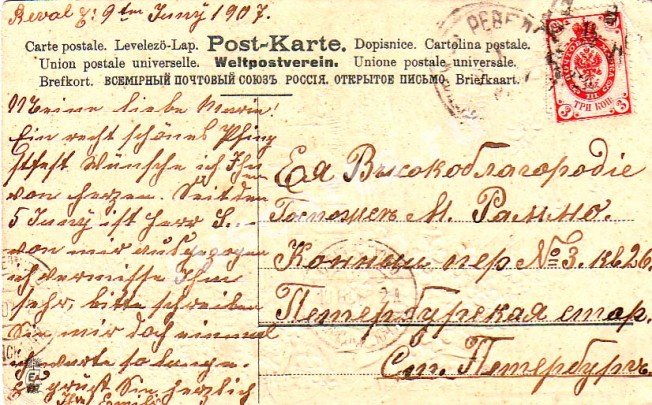 Reval d: 9ten Juny 1907.
РЕВЕЛ
Carte postale. Levelezö-Lap. Post-Karte. Dopisnice. Cartolina postale.
Union postale universelle. Weltpostverein. Unione postale universale.
Brefkort. ВСЕМІРНЫЙ ПОЧТОВЫЙ СОЮЗЪ РОССІЯ. ОТКРЫТОЕ ПИСЬМО. Briefkaart.
3 ТРИ КОП. 3
Meine liebe
Ein recht schönes Pfing
stfest Wünsche ich Ihn
von herzen. Seit den
5 Juny ist Herr S...
von mir ausgezogen
ich vermisse Ihn
sehr, bitte schreiben
Sie mir doch einmal
ich warte so lange.
Es grüsst Sie herzlich
Ihre Emilie
Ея Высокоблагородіе
Госпожѣ М. Раммо.
Конный пер № 3. кв 26.
Петербургская стор.
С т. Петербургъ.